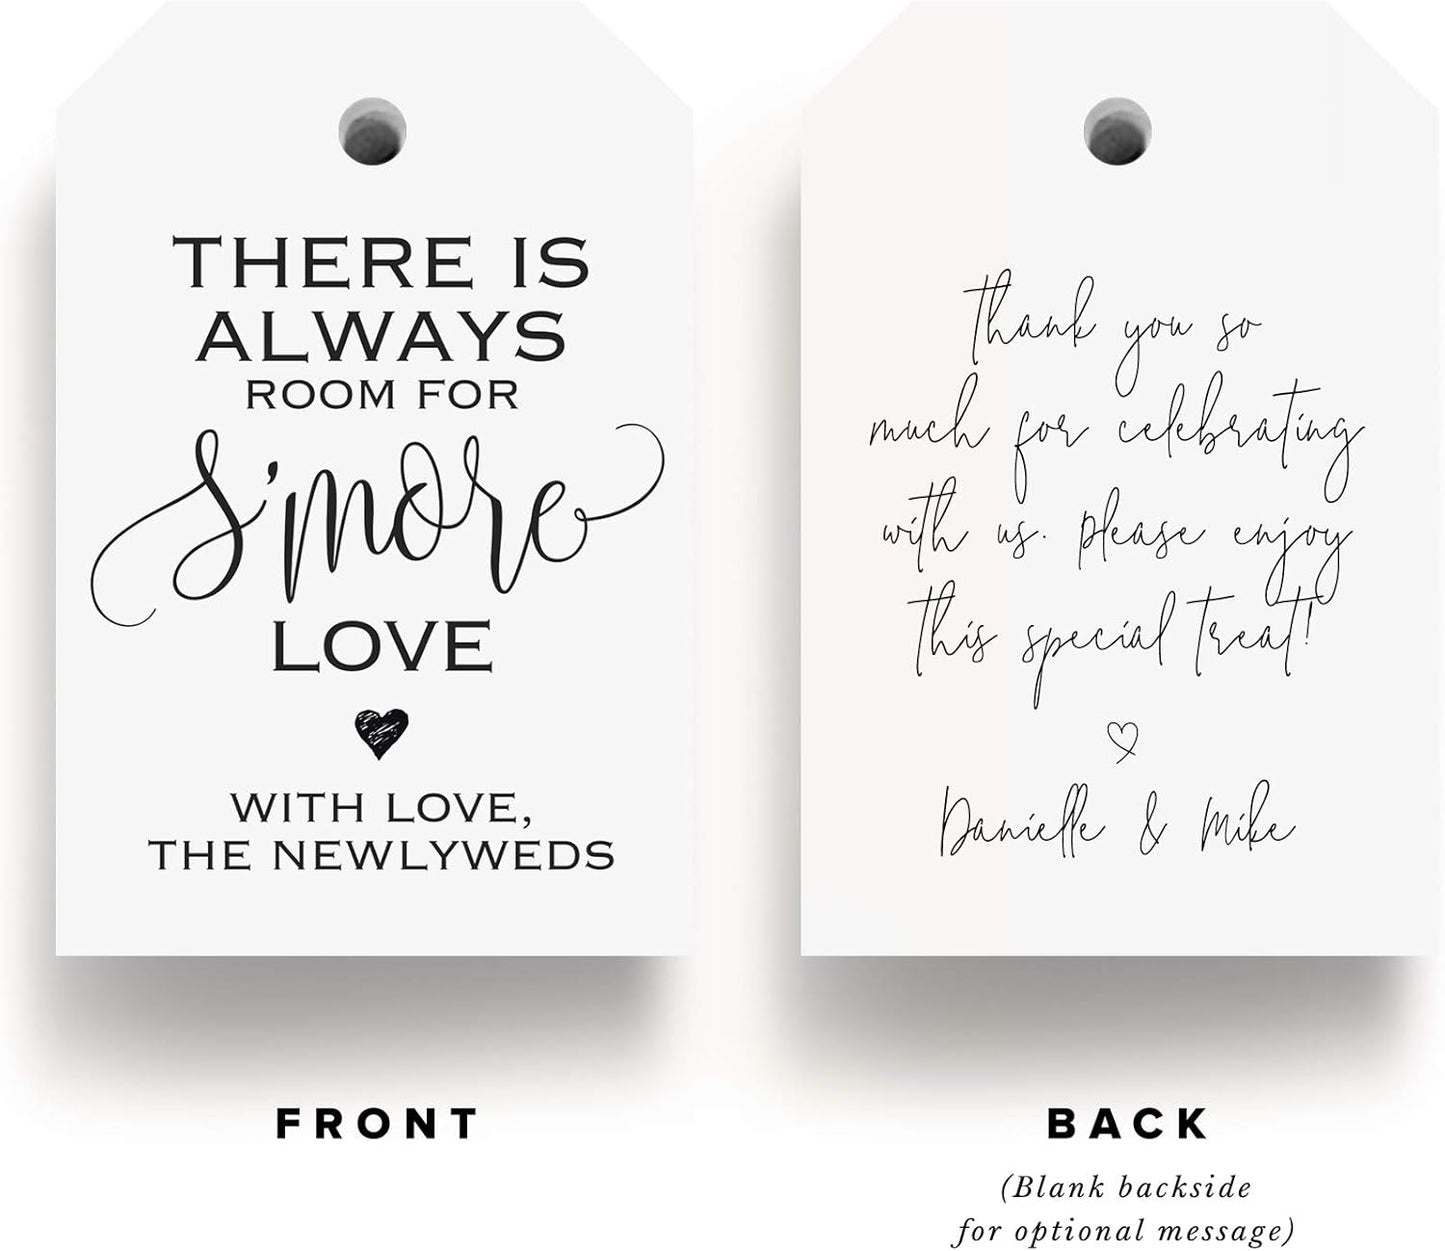 THERE IS
ALWAYS
ROOM FOR
S'more
LOVE
WITH LOVE,
THE NEWLYWEDS
FRONT
Thank you so
much for celebrating
with us. please enjoy
this special treat!
Danielle & Mike
BACK
(Blank backside
for optional message)